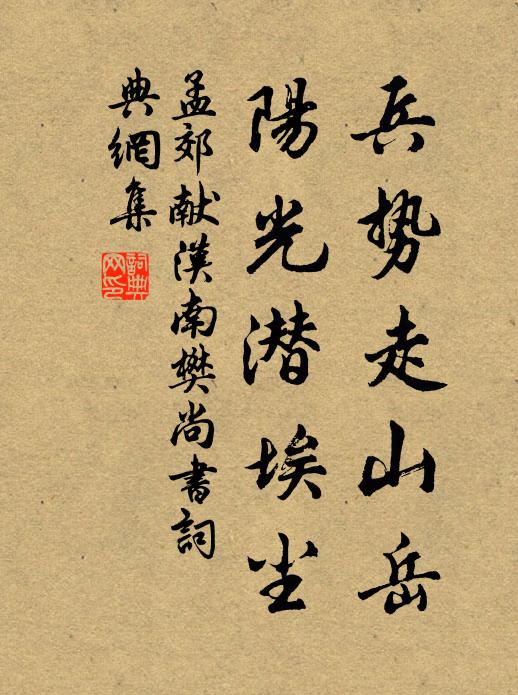 兵势走山岳
陽光潜埃尘
孟郊献漢南樊尚書詞
典網集
詞典
网印